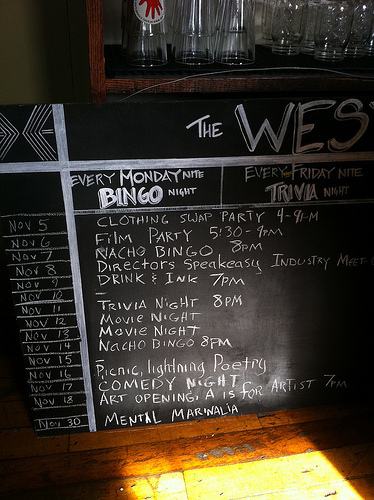 THE WES
EVERY MONDAY NITE
BINGO NIGHT
EVERY FRIDAY NITE
TRIVIA NIGHT
NOV 5 CLOTHING SWAP PARTY 4-9PM
NOV 6 FILM PARTY 5:30-9PM
NOV 7 NACHO BINGO 8PM
NOV 8 DIRECTORS SPEAKEASY INDUSTRY MEET-
NOV 9 DRINK & INK 7PM
NOV 10 -
NOV 11 TRIVIA NIGHT 8PM
NOV 12 MOVIE NIGHT
NOV 13 MOVIE NIGHT
NOV 14 NACHO BINGO 8PM
NOV 15 -
NOV 16 Picnic, lightning Poetry
NOV 17 COMEDY NIGHT
NOV 18 ART OPENING, A is FOR ARTIST 7PM
NOV 30 MENTAL MARINALIA